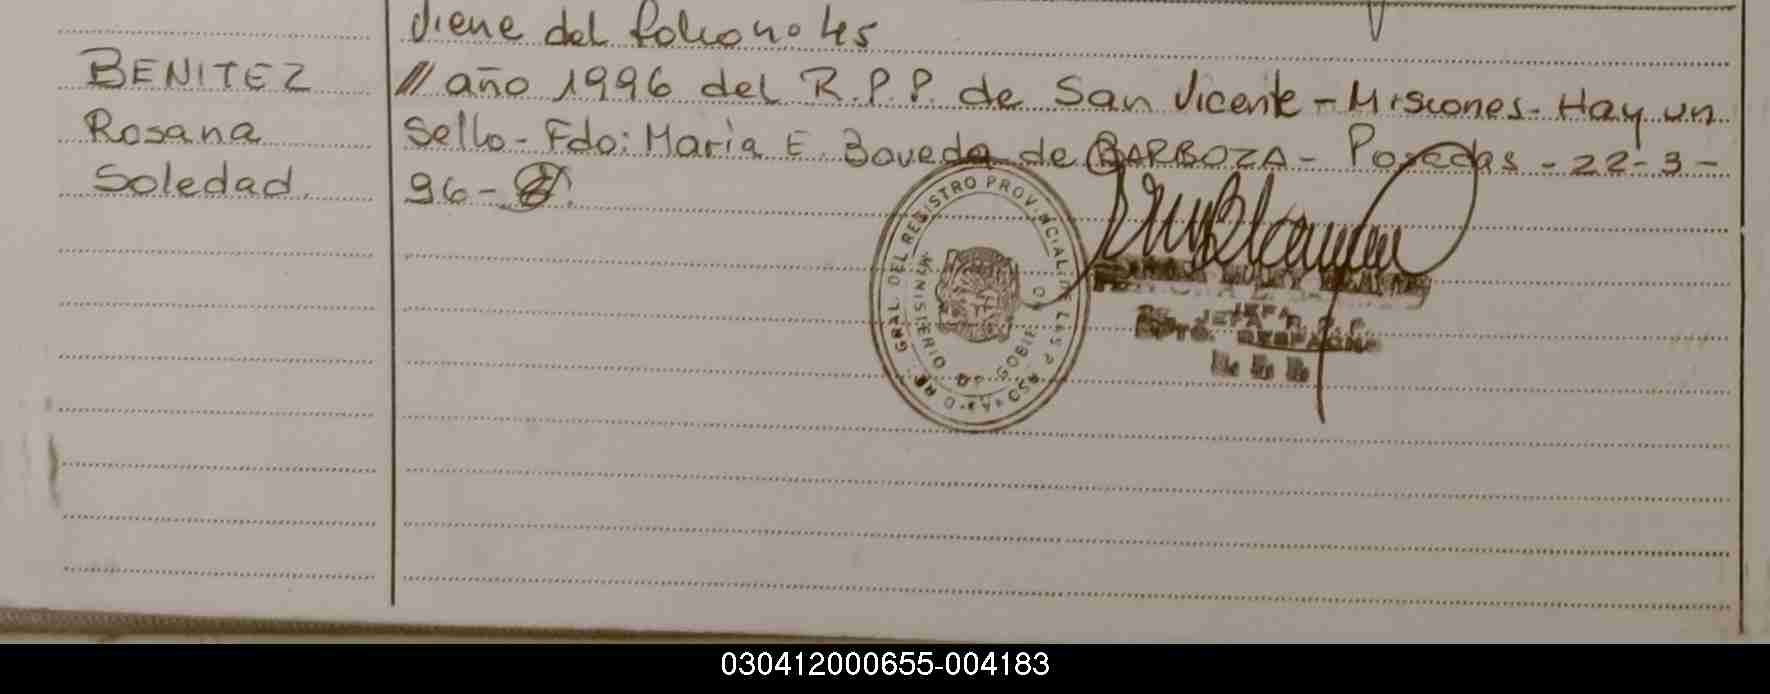 viene del folio no 45
BENITEZ
Rosana
Soledad.
// año 1996 del R.P.P. de San Vicente - Misiones - Hay un
Sello - Fdo: Maria E. Boveda de BARBOZA - Posadas - 22-3-
96 -
GRAL DEL REGISTRO PROVINCIAL DE LAS PERSONAS
MINISTERIO DE GOBIERNO
JEFA
DPTO. DESPACHO
030412000655-004183